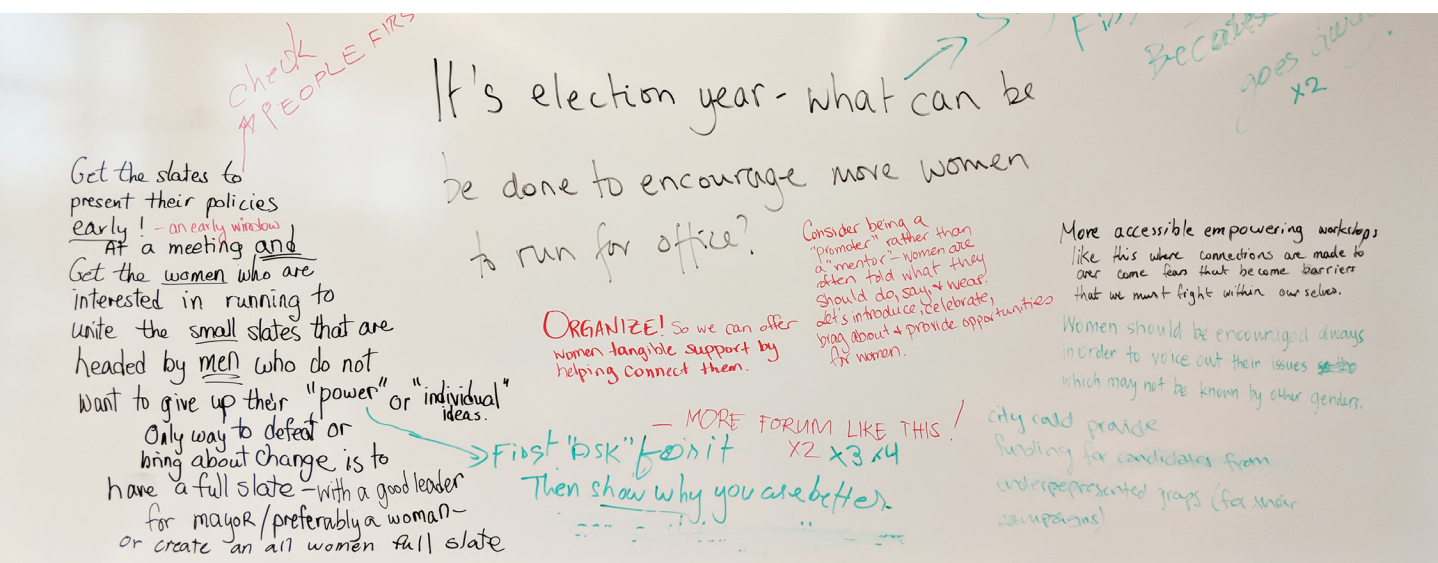 check
PEOPLE FIRS
Firs
Because
goes away.
x2
It's election year - what can be
be done to encourage more women
to run for office?
Get the slates to
present their policies
early! - an early window
At a meeting and
Get the women who are
interested in running to
unite the small slates that are
headed by men who do not
want to give up their "power" or "individual
ideas."
Only way to defeat or
bring about change is to
have a full slate - with a good leader
for mayor/preferably a woman -
or create an all women full slate
ORGANIZE! So we can offer
women tangible support by
helping connect them.
Consider being a
"promoter" rather than
a "mentor" - women are
often told what they
should do, say, & wear.
Let's introduce, celebrate,
brag about & provide opportunities
for women.
- MORE FORUM LIKE THIS!
x2 x3 x4
First "ask" for it
Then show why you are better.
More accessible empowering workshops
like this where connections are made to
over come fears that become barriers
that we must fight within our selves.
Women should be encouraged always
in order to voice out their issues
which may not be known by other genders.
city could provide
funding for candidates from
underpepresented groups (for their
campaigns)